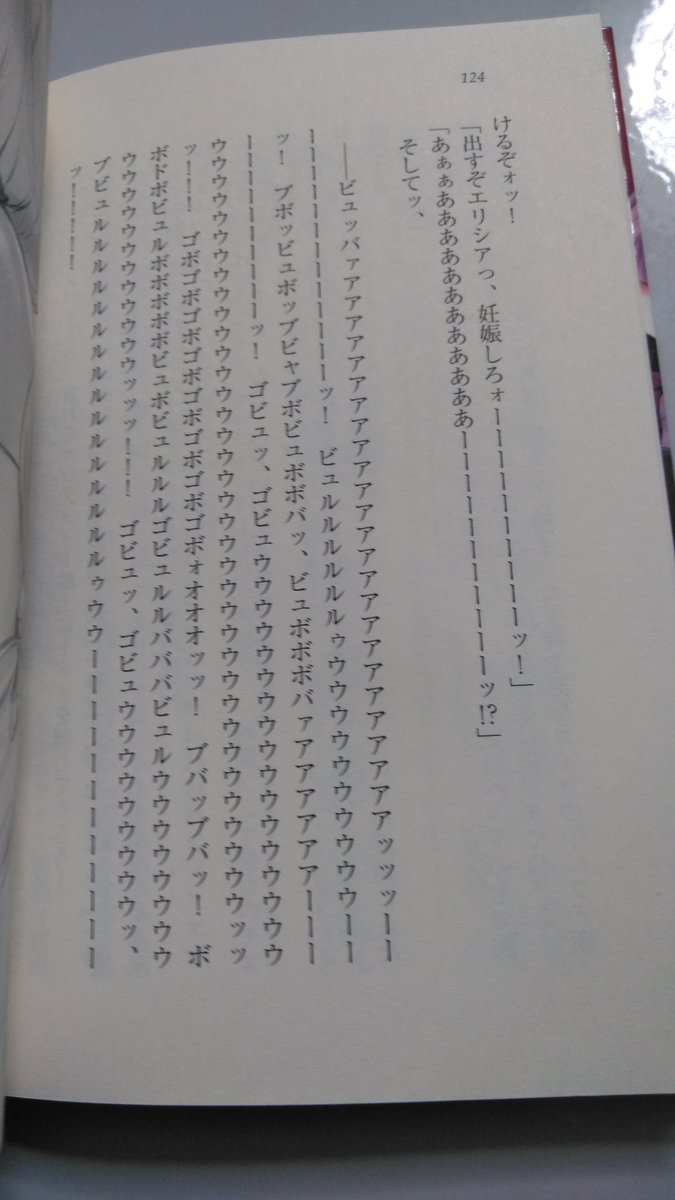 124
けるぞォッ！
「出すぞエリシアっ、妊娠しろォーーーーーーーーーーッ！」
「あぁぁああああああああああーーーーーーーーーーッ!?」
そしてッ、
――ビュッバァアアアアアアアアアアアアアアアアアアアアアアアッッッーー
ーーーーーーーーーーーーッ！　ビュルルルルルルゥウウウウウウウウウウーー
ッ！　ブボッビュボップビャブボビュボボバッ、ビュボボボバァアアアアアアーーー
ーーーーーーーーーッ！　ゴビュッ、ゴビュウウウウウウウウウウウウウウウウ
ウウウウウウウウウウウウウウウウウウウウウウウウウウウウウウウウウウッッ
ッ！！！　ゴボゴボゴボゴボゴボゴボゴボォオオオオッッ！　ブバッブバッ！　ボ
ボドボビュルボボボボボビュボビュルルルゴビュルルバババビュルウウウウウウウウ
ウウウウウウウウウウウウッッッ！！！　ゴビュッ、ゴビュウウウウウウウウウウッ、
ブビュルルルルルルルルルルルルルルルルルルルゥウウーーーーーーーーーーーー
ッ！！！！！